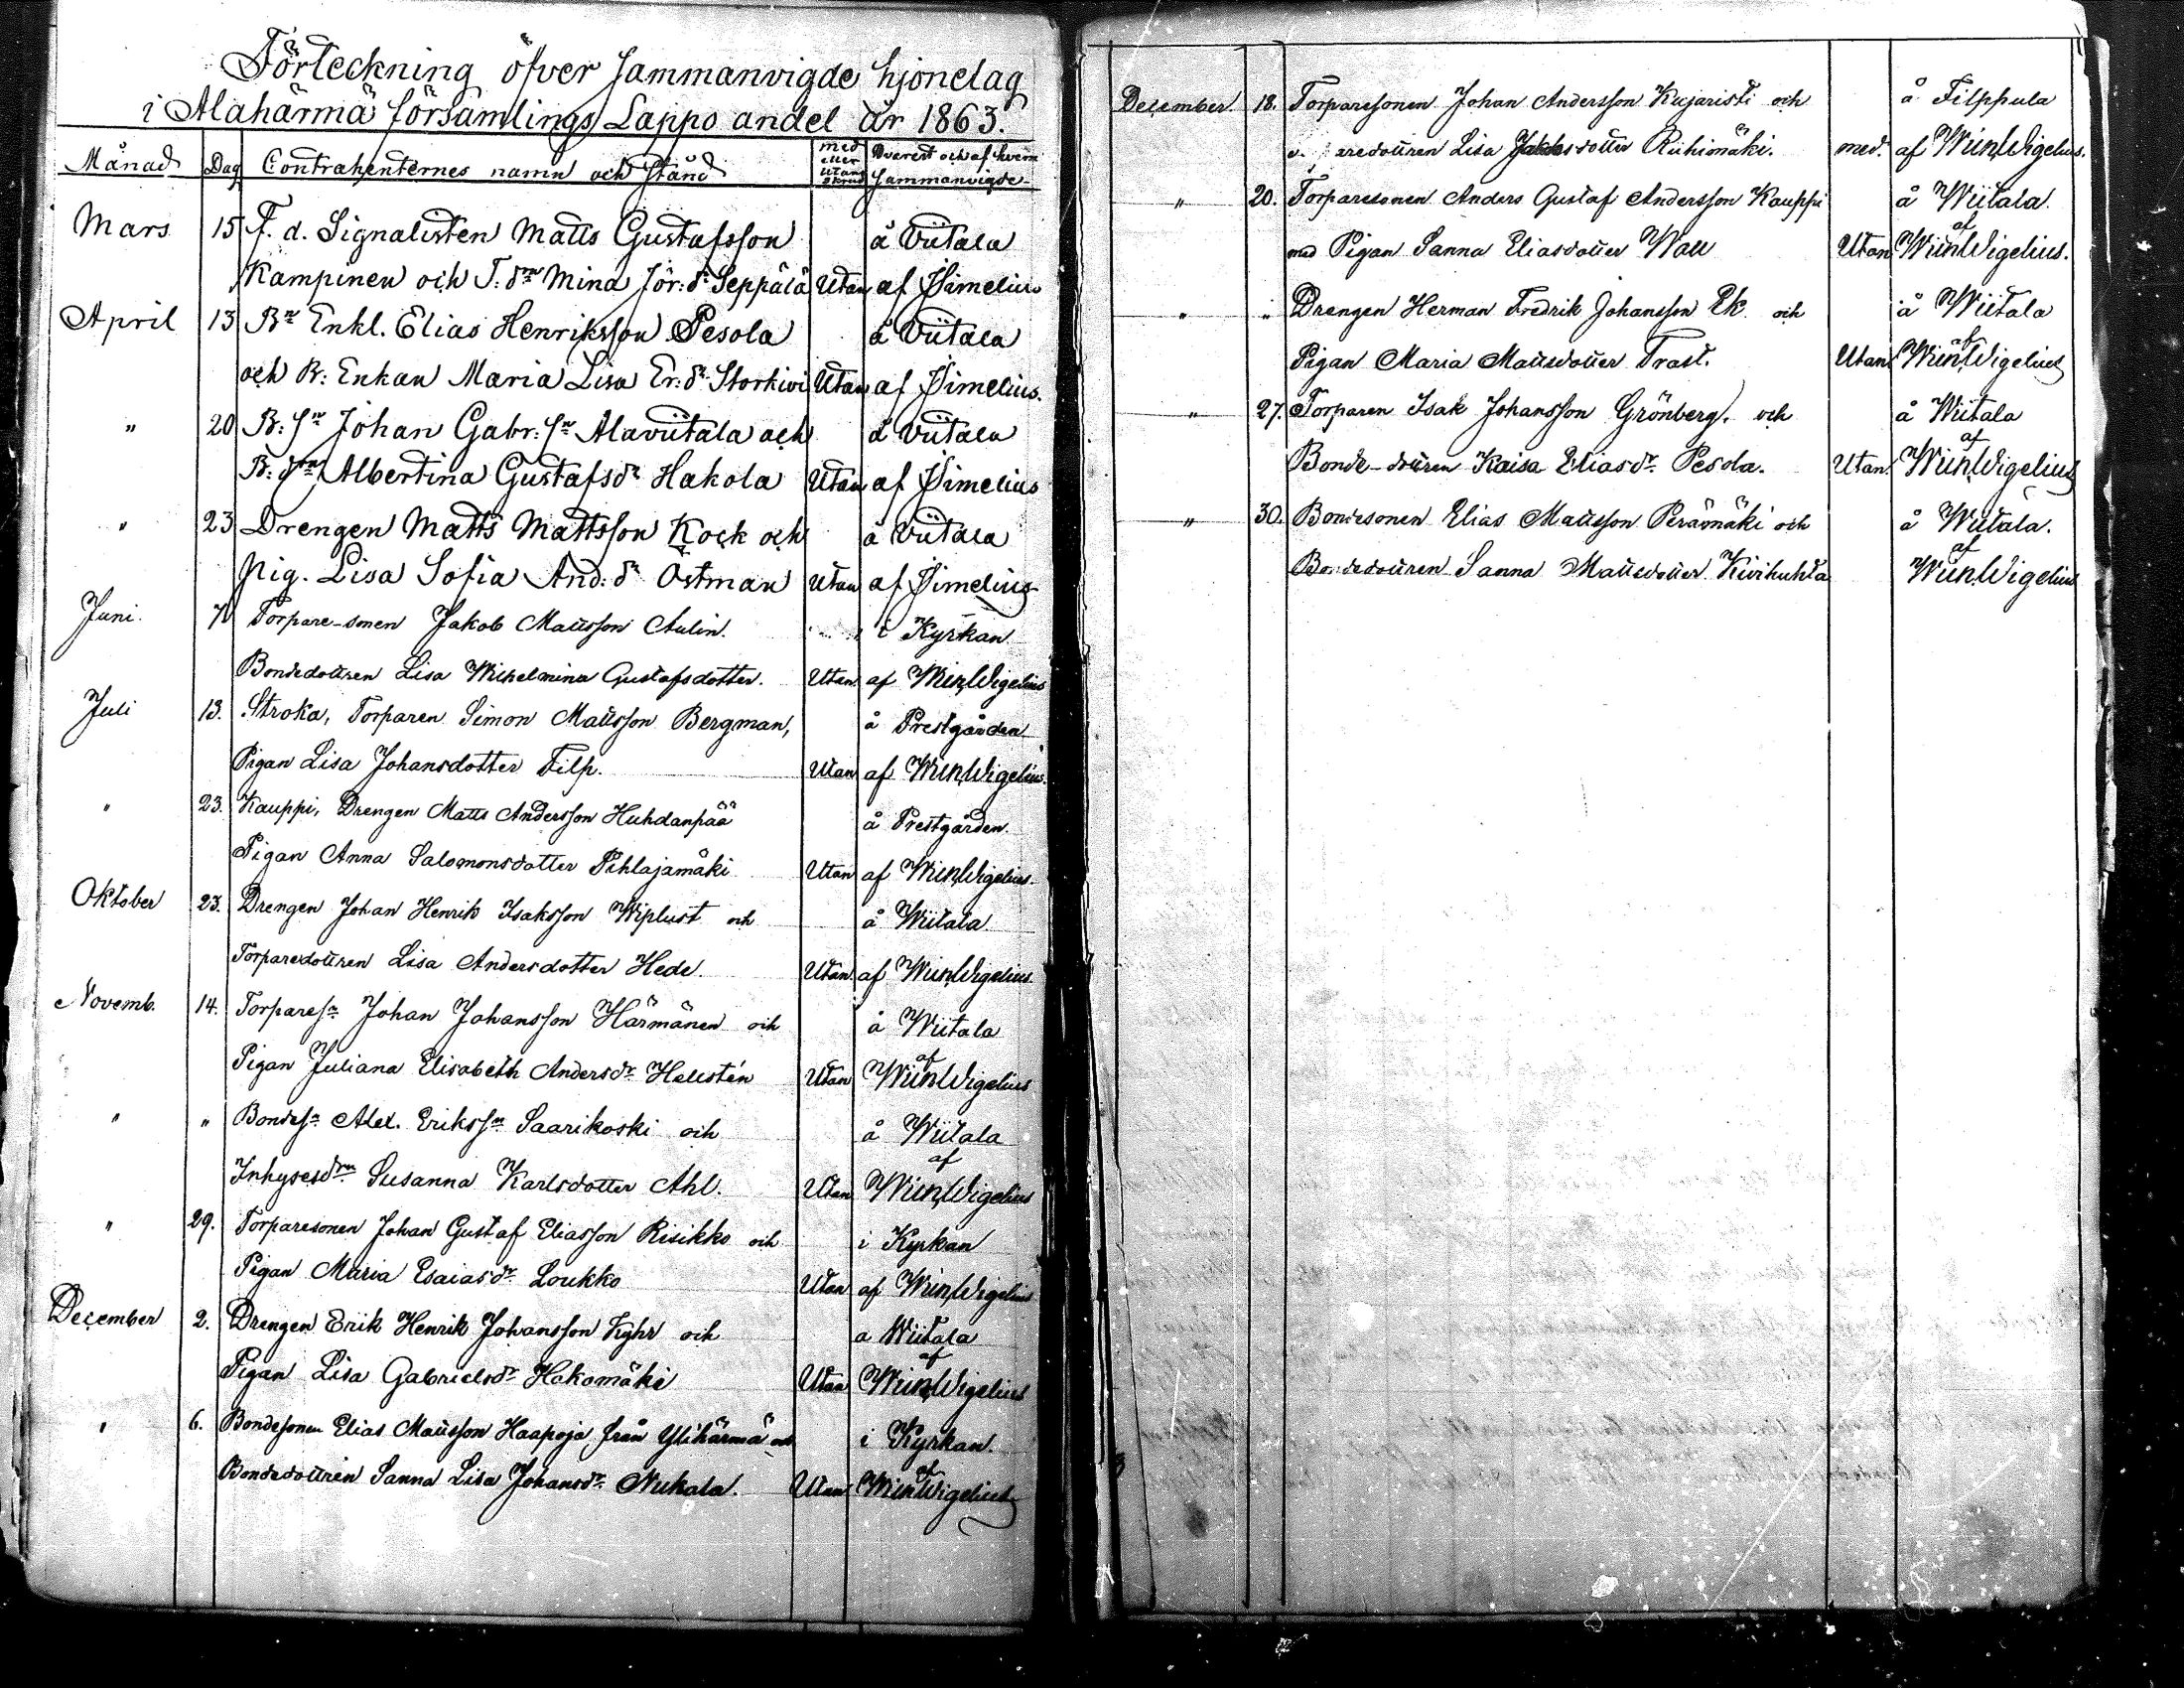 Förteckning öfver sammanvigde hjonelag
i Alahärmä församlings Lappo andel år 1863.
Månad Dag Contrahenternes namn och stånd med eller utan skrud Hvarest och af hvem sammanvigde
Mars 15 F. d. Signalisten Matts Gustafsson å Viitala
Kampinen och T: drn Mina Jör: dr Seppälä Utan af Simelius
April 13 Br Enkl. Elias Henriksson Pesola å Viitala
och B: Enkan Maria Lisa Er: dr Storkivi Utan af Simelius.
" 20 B: sn Johan Gabr: sn Alaviitala och å Viitala
B: drn Albertina Gustafsdr Hakola Utan af Simelius
" 23 Drengen Matts Mattsson Kock och å Viitala
Pig. Lisa Sofia And: dr Östman Utan af Simelius
Juni. 7 Torpare-sonen Jakob Mattsson Aulin. i Kyrkan
Bondedottren Lisa Wilhelmina Gustafsdotter. Utan af Wigelius
Juli 13. Stroka, Torparen Simon Mattsson Bergman, å Prestgården
Pigan Lisa Johansdotter Filp. Utan af Wigelius.
" 23. Kauppi, Drengen Matts Andersson Huhdanpää å Prestgården.
Pigan Anna Salomonsdotter Pihlajamäki Utan af Wigelius.
Oktober 23. Drengen Johan Henrik Isaksson Wiplust och å Wiitala
Torparedottren Lisa Andersdotter Hede. Utan. af Wigelius.
Novemb. 14. Torparesn Johan Johansson Härmänen och å Wiitala
Pigan Juliana Elisabeth Andersdr Hellstén Utan af Wigelius
" " Bondesn Alex. Erikssn Saarikoski och å Wiitala
Inhysesdrn Susanna Karlsdotter Ahl. Utan af Wigelius
" 29. Torparesonen Johan Gustaf Eliasson Risikko och i Kyrkan
Pigan Maria Esaiasdr Loukko Utan af Wigelius
December 2. Drengen Erik Henrik Johansson Kyhr och a Wiitala
Pigan Lisa Gabrielsdr Hakomäki Utan af Wigelius
" 6. Bondesonen Elias Mattsson Haapoja från Ylihärmä och i Kyrkan.
Bondedottren Sanna Lisa Johansdr Nukala. Utan af Wigelius
December. 18. Torparesonen Johan Andersson Kujaristi och å Filppula
aredottren Lisa Jakobsdotter Riihimäki. med. af Wigelius.
" 20. Torparesonen Anders Gustaf Andersson Kauppi å Wiitala.
med Pigan Sanna Eliasdotter Wall Utan af Wigelius.
" " Drengen Herman Fredrik Johansson Ek och å Wiitala
Pigan Maria Mattsdotter Trast. Utan af Wigelius
" 27. Torparen Isak Johansson Grönberg. och å Wiitala
Bonde-dottren Kaisa Eliasdr Pesola. Utan. af Wigelius
" 30. Bondesonen Elias Mattsson Perämäki och å Wiitala.
Bondedottren Sanna Mattsdotter Kivihuhta af Wigelius